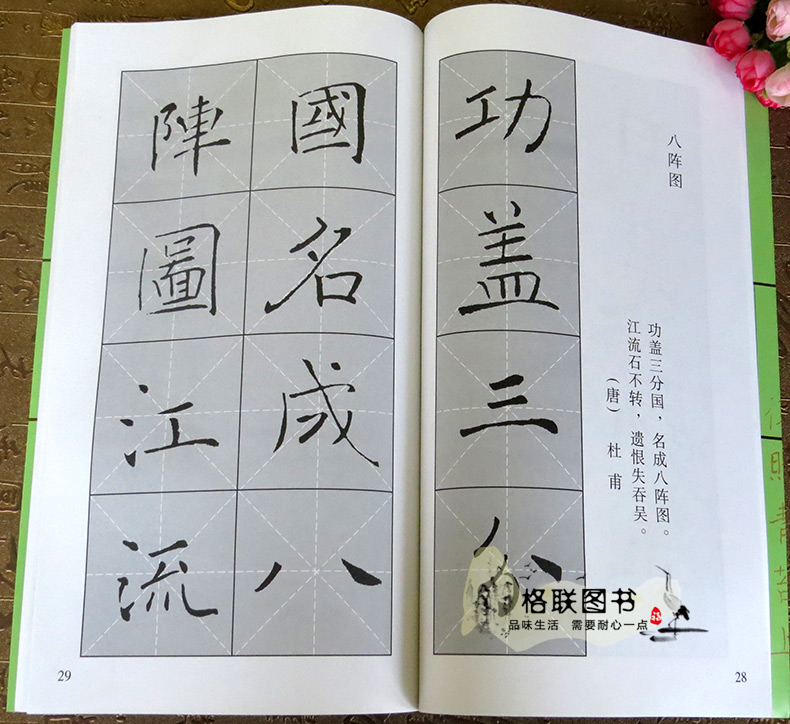 八阵图
功盖三分国，名成八阵图。
江流石不转，遗恨失吞吴。
（唐） 杜甫
功盖三分
國名成八
陣圖江流
格联图书
品味生活 需要耐心一点
28
29